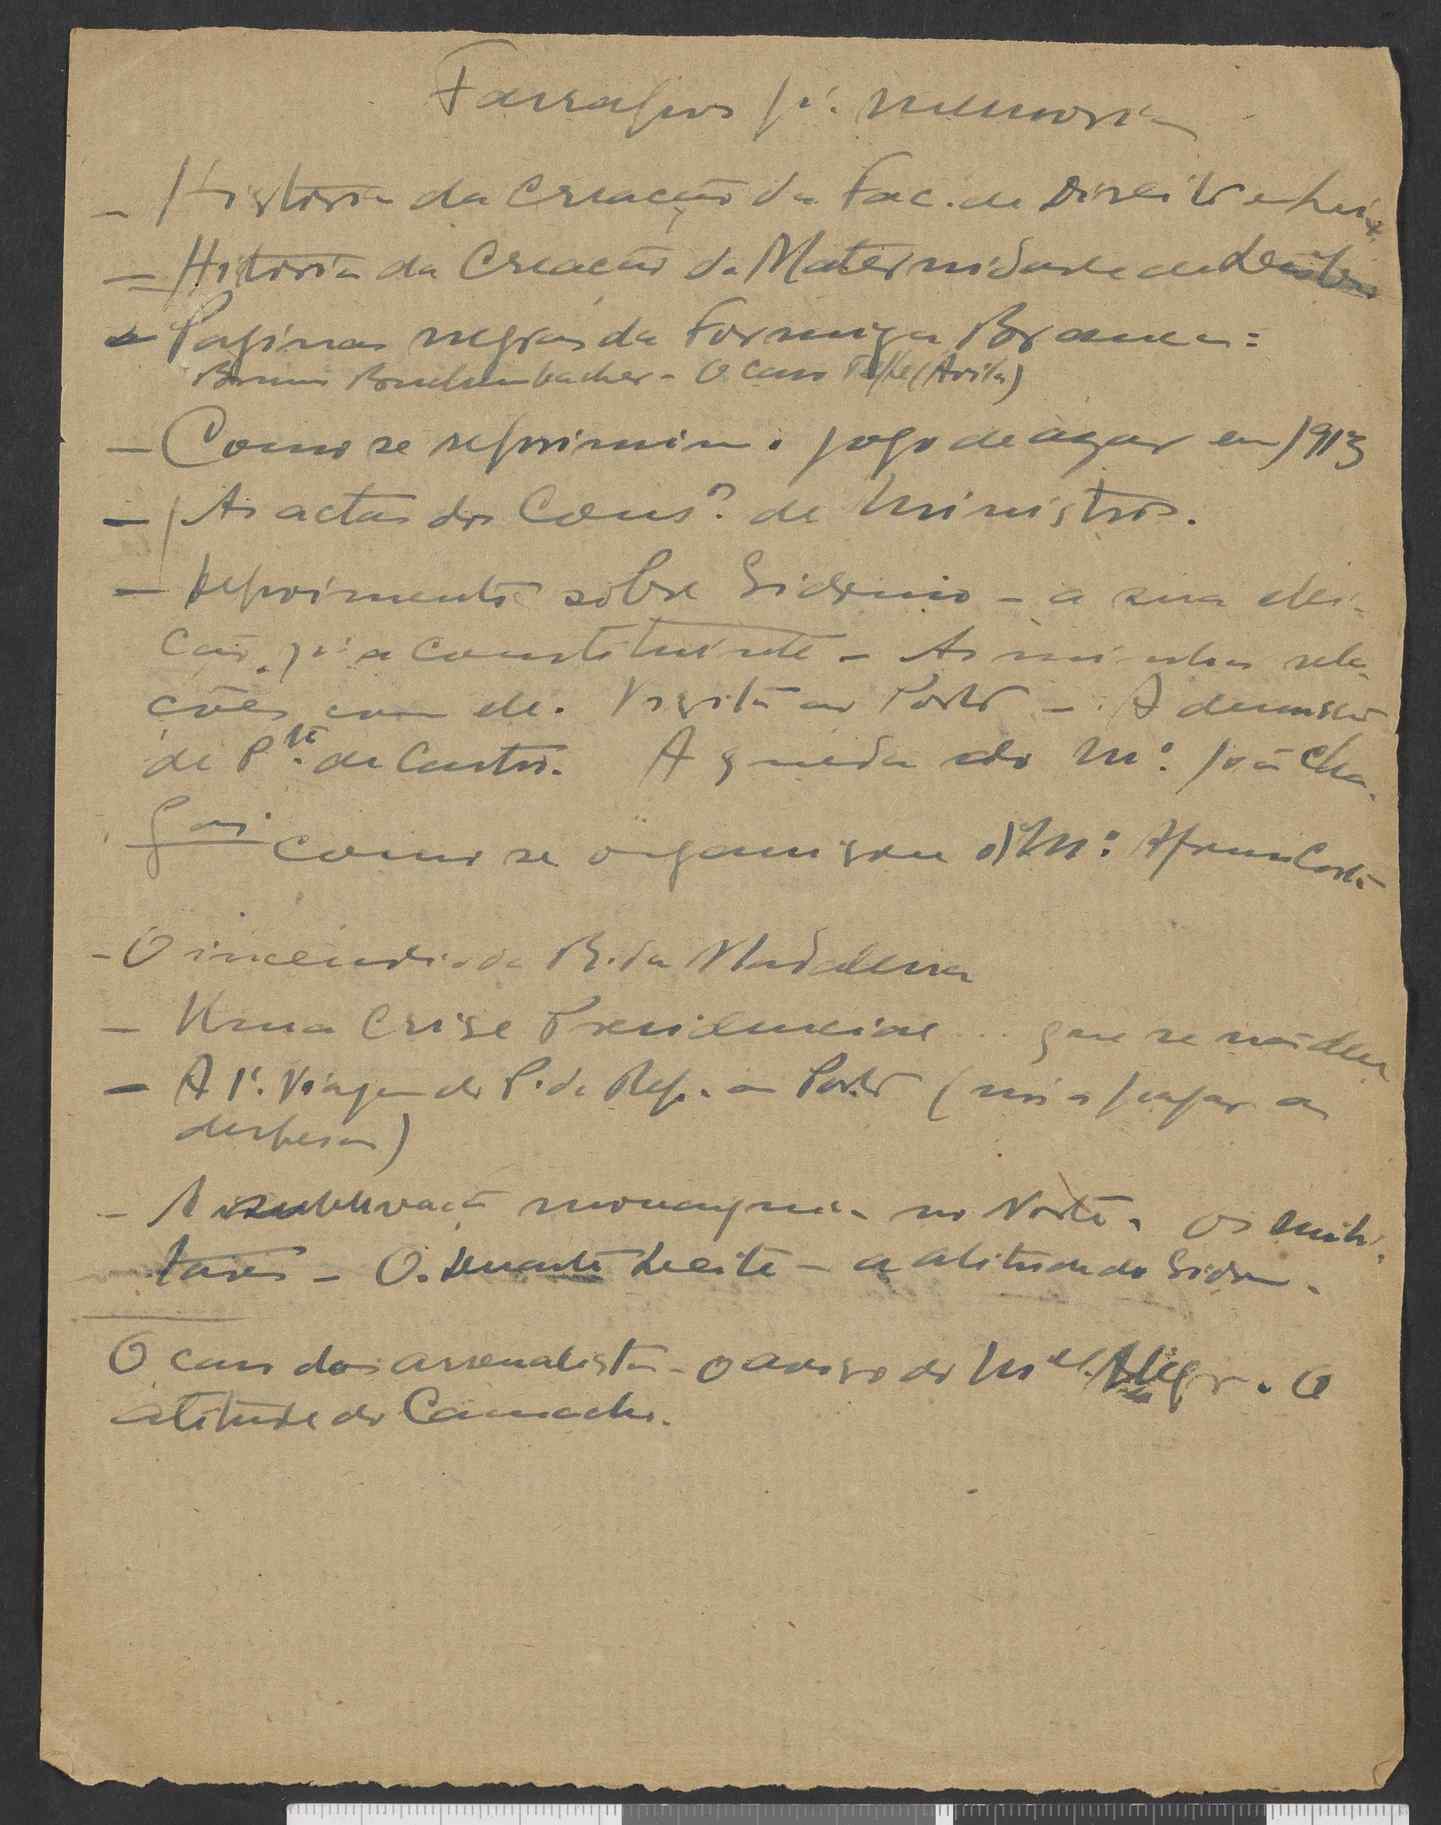 Farrapos p.ª memoria
- Historia da creação da Fac. de Direito e Lei
- Hitoria da Creação da Maternidade de
- Paginas negras da Formiga Branca:
Bruno - O caso (Avila)
- Como se reprimiu o jogo de azar em 1913
- As actas dos Cons.º de Ministros.
- Depoimento sobre Sidonio - a sua elei-
ção p.ª a constituinte - As minhas rela-
ções com ele. Visita ao Porto - A demissão
de P.te de Castro. A queda do M.º João Cha-
gas. como se organisou o M.º Afonso Costa
- O incendio da R. da Madalena
- Uma Crise Presidencial ... que se não deu
- A 1ª. Viagem do P. da Rep. ao Porto (pagar as
despesas)
- A sublevação monarquica no Norte. Os mili-
tares - O. Duarte Leite - a atitude do Sidon.
O caso dos arsenalistas - o aviso do M.el Alegr. A
atitude do Camacho.